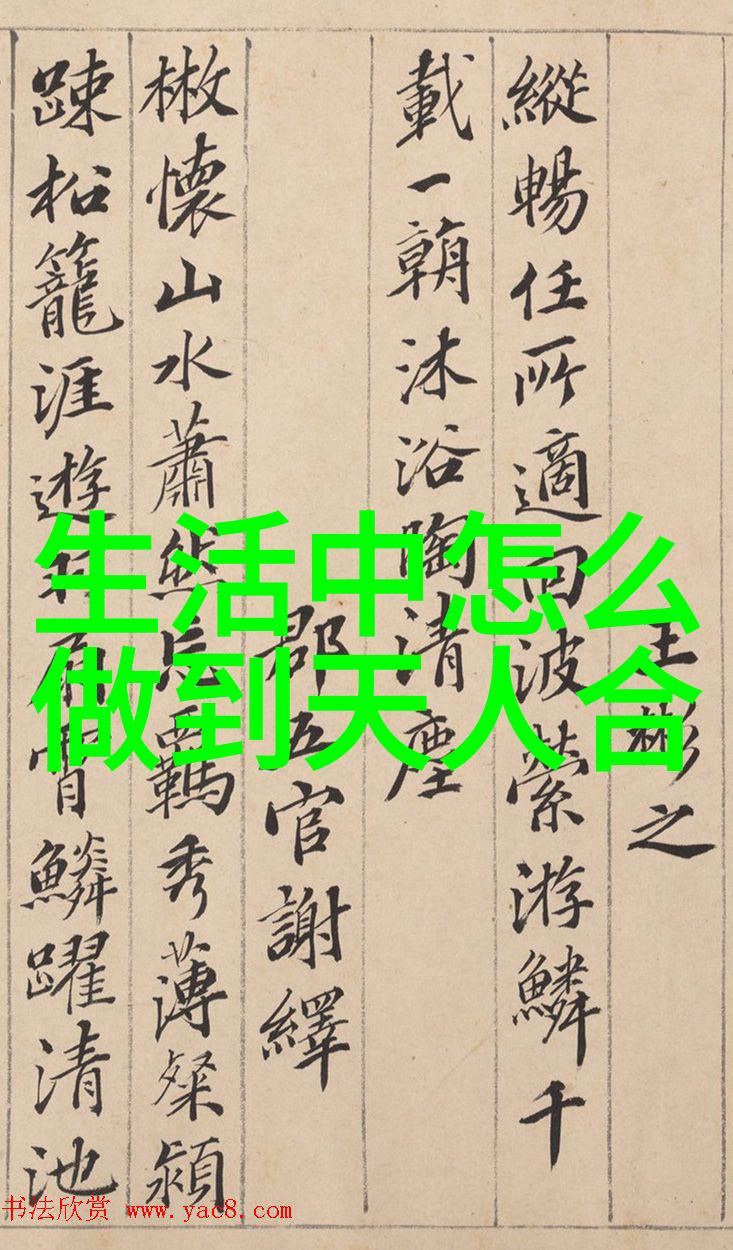 王彬之
縱暢任所適回波縈游鱗千
載一朝沐浴陶清塵
郡五官謝繹
㪚懷山水蕭然忘羈秀薄粲穎
踈松籠涯遊羽扇霄鱗躍清池
生活中怎么
做到天人合
书法欣赏 www.yac8.com